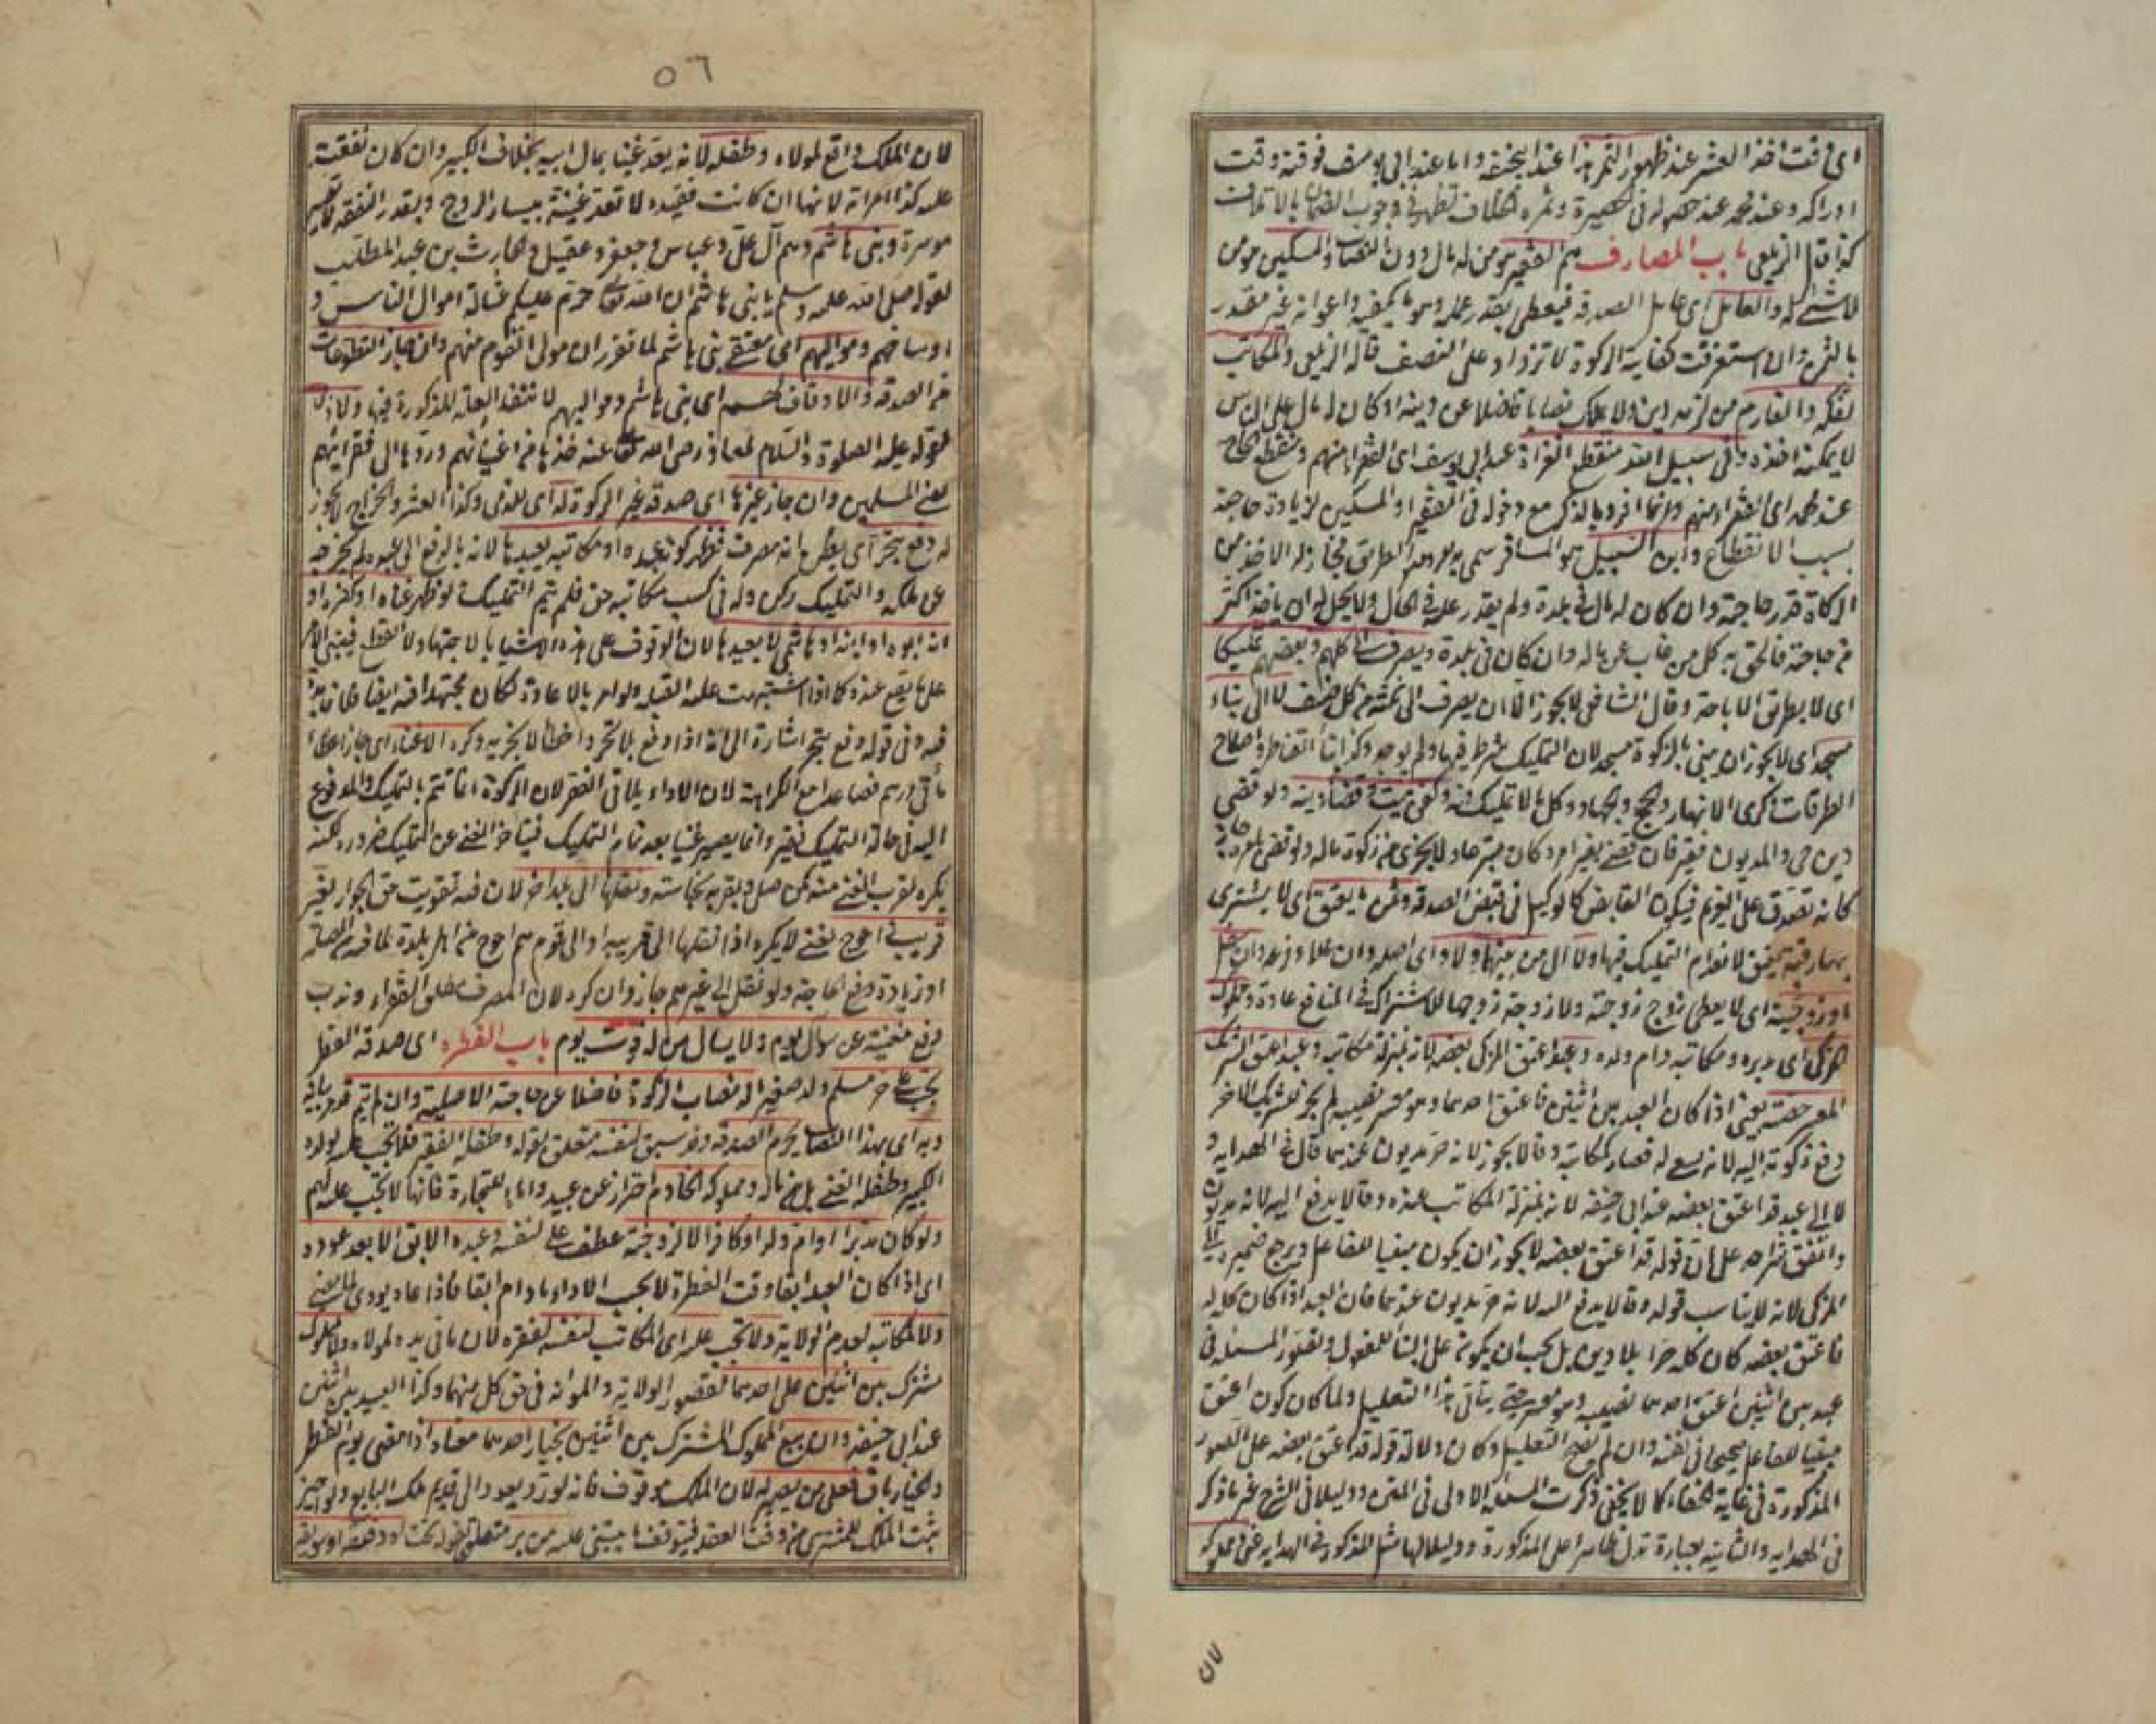 اى وقت اخذ العشر عند ظهور الثمر هذا عند ابيحنيفة واما عند ابى يوسف فوقته وقت
ادراكه وعند محمد عند حصوله فى الحظيرة وثمرة الخلاف تظهر فى وجوب الضمان بالاتلاف
كذا قال الزيلعى باب المصارف هم الفقير هو من له مال دون النصاب والمسكين هو من
لا شئ له والعامل اى عامل الصدقة فيعطى بقدر عمله وهو ما يكفيه واعوانه غير مقدر
بالثمن وان استغرقت كفايته الزكوة لا تزداد على النصف قاله الزيلعى والمكاتب
لفكه والغارم من لزمه دين ولا يملك نصابا فاضلا عن دينه او كان له مال على الناس
لا يمكنه اخذه وفى سبيل الله منقطع الغزاة عند ابى يوسف اى الفقراء منهم ومنقطع الحاج
عند محمد اى الفقراء منهم وانما افرد بالذكر مع دخوله فى الفقير او المسكين لزيادة حاجته
بسبب الانقطاع وابن السبيل هو المسافر سمى به للزومه الطريق فجاز له الاخذ من
الزكاة قدر حاجته وان كان له مال فى بلده ولم يقدر عليه فى الحال ولا يحل له ان ياخذ اكثر
من حاجته فالحق به كل من غاب عن ماله وان كان فى بلده ويصرف الى كلهم او بعضهم تمليكا
اى لا بطريق الاباحة وقال الشافعى لا يجوز الا ان يصرف الى ثلثة من كل صنف لا الى بناء
مسجد اى لا يجوز ان يبنى بالزكوة مسجد لان التمليك شرط فيها ولم يوجد وكذا بناء القناطر واصلاح
الطرقات وكرى الانهار والحج والجهاد وكل ما لا تمليك فيه وكفن ميت وقضاء دينه ولو قضى
دين حى والمديون فقير فان قضى بغير امره كان متبرعا ولا يجزى من زكوة ماله ولو قضى بامره جاز
كانه تصدق على الغريم فيكون القابض كالوكيل فى قبض الصدقة وثمن ما يعتق اى لا يشترى
بها رقبة تعتق لانعدام التمليك فيها ولا الى من بينهما ولاد اى اصله وان علا وفرعه وان سفل
او زوجية اى لا يعطى زوج زوجته ولا زوجة زوجها للاشتراك فى المنافع عادة ومملوك
المزكى اى مدبره ومكاتبه وام ولده وعبد اعتق المزكى بعضه لانه بمنزلة مكاتبه وعبد اعتق الشريك
المعسر حصته يعنى اذا كان العبد بين اثنين فاعتق احدهما وهو معسر نصيبه لم يجز للشريك الاخر
دفع زكوته اليه لانه يسعى له فصار كمكاتبه وقالا يجوز لانه حر مديون عندهما قال فى الهداية و
لا الى عبد قد اعتق بعضه عند ابى حنيفة لانه بمنزلة المكاتب عنده وقالا يدفع اليه لانه مديون
واتفق شراحه على ان قوله قد اعتق بعضه لا يجوز ان يكون مبنيا للفاعل ويرجع ضميره الى
المزكى لانه لا يناسب قوله وقالا يدفع اليه لانه حر مديون عندهما فان العبد اذا كان كله له
فاعتق بعضه كان كله حرا بلا دين بل يجب ان يكون على البناء للمفعول وتصور المسئلة فى
عبد بين اثنين اعتق احدهما نصيبه وهو معسر حتى يتاتى هذا التعليل ولما كان كون اعتق
مبنيا للفاعل صحيحا فى نفسه وان لم يصح التعليل وكان دلالة قوله قد اعتق بعضه على الصور
المذكورة فى غاية الخفاء كما لا يخفى ذكرت المسئلة الاولى فى المتن ودليلها فى الشرح غير ما ذكر
فى الهداية والثانية بعبارة تدل ظاهرا على المذكورة ودليلا لها مثل المذكور فى الهداية وغنى ومملوكه
٥٦
لان الملك واقع لمولاه وطفله لانه يعد غنيا بمال ابيه بخلاف الكبير وان كان نفقته
عليه كذا امراته لانها ان كانت فقيرة لا تعد غنية بيسار الزوج وبقدر النفقة لا تصير
موسرة وبنى هاشم وهم آل على وعباس وجعفر وعقيل والحارث بن عبد المطلب
لقوله صلى الله عليه وسلم يا بنى هاشم ان الله تعالى حرم عليكم غسالة اموال الناس و
اوساخهم ومواليهم اى معتقى بنى هاشم لما تقرر ان مولى القوم منهم وان جاز التطوعات
من الصدقة والاوقاف لهم اى بنى هاشم ومواليهم لانتفاء العلة المذكورة فيها ولا ذمى
لقوله عليه الصلوة والسلام لمعاذ رضى الله تعالى عنه خذها من اغنيائهم وردها الى فقرائهم
يعنى المسلمين وان جاز غيرها اى صدقة غير الزكوة له اى للذمى وكذا العشر والخراج لا يجوز
له دفع بتحر اى يظن انه مصرف فظهر كونه عبده او مكاتبه يعيدها لانه بالدفع الى عبده لم يخرجه
عن ملكه والتمليك ركن وله فى كسب مكاتبه حق فلم يتم التمليك ولو ظهر غناه او كفره او
انه ابوه او ابنه او هاشمى لا يعيدها لان الوقوف على هذه الاشياء بالاجتهاد لا القطع فيبنى الامر
على ما يقع عنده كما اذا اشتبهت عليه القبلة ولو امر بالاعادة لكان مجتهدا فيه ايضا فلا فائدة
فيه وفى قوله دفع بتحر اشارة الى انه اذا دفع بلا تحر واخطأ لا يجزيه وكره الاغناء اى جاز اعطاء
مأتى درهم فصاعدا مع الكراهة لان الاداء يلاقى الفقر لان الزكوة انما تتم بالتمليك والمدفوع
اليه فى حالة التمليك فقير وانما يصير غنيا بعد تمام التمليك فيتأخر الغنى عن التمليك ضرورة لكنه
يكره لقرب الغنى منه كمن صلى وبقربه نجاسة ونقلها الى بلد اخر لان فيه تفويت حق الجوار لغير
قريب احوج يعنى لا يكره اذا نقلها الى قريبه او الى قوم هم احوج من اهل بلده لما فيه من الصلة
او زيادة دفع الحاجة ولو نقل الى غيرهم جاز وان كره لان المصرف مطلق الفقراء وندب
دفع مغنية عن سؤال يوم ولا يسال من له قوت يوم باب الفطرة اى صدقة الفطر
تجب على حر مسلم وله صغيرا له نصاب الزكوة فاضلا عن حاجته الاصلية وان لم ينم قد مر بيانه
وبه اى بهذا النصاب يحرم الصدقة وقد سبق لنفسه متعلق بقوله وطفله الفقير فلا تجب عليه لولده
الكبير وطفله الغنى بل من ماله ومملوكه الخادم احتراز عن عبيد واماء للتجارة فانها لا تجب عليه لهم
ولو كان مدبرا او ام ولد او كافرا لا لزوجته عطف على لنفسه وعبده الابق الا بعد عوده
اى اذا كان العبد ابقا وقت الفطرة لا يجب الاداء ما دام ابقا فاذا عاد يودى لما مضى
ولا لمكاتبه لعدم الولاية ولا تجب عليه اى المكاتب لنفسه لفقره لان ما فى يده لمولاه ولا لمملوك
مشترك بين اثنين على احدهما لقصور الولاية والمؤنة فى حق كل منهما وكذا العبيد بين اثنين
عند ابى حنيفة وان بيع المملوك المشترك بين اثنين بخيار احدهما معناه اذا مضى يوم الفطر
والخيار باق فعلى من يصير له لان الملك موقوف فانه لو رد يعود الى قديم ملك البايع ولو اجيز
ثبت الملك للمشترى من وقت العقد فيتوقف ما يبتنى عليه من بر متعلق بقوله تجب او دقيقه او سويقه